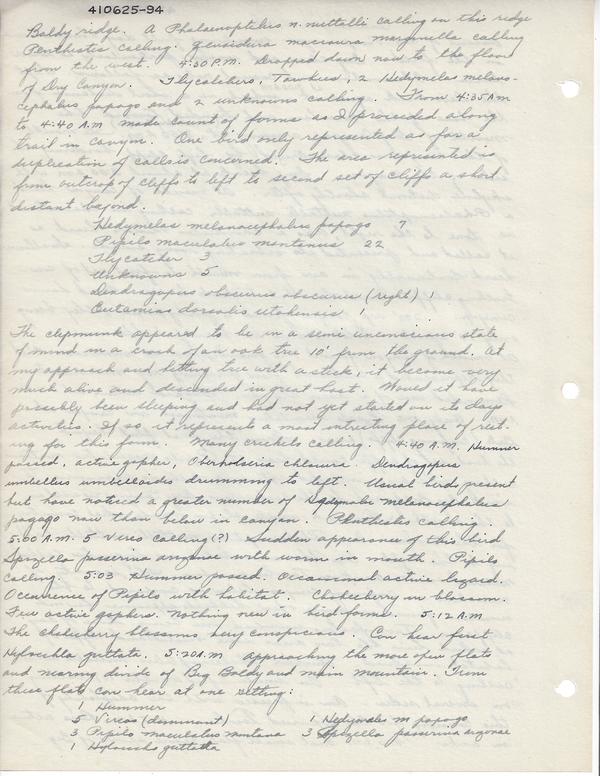 410625-94
Baldy ridge. A Phalaenoptilus n. nuttalli calling on this ridge
Penthestes calling. Zenaidura macroura marginella calling
from the west. 4:30 P.M. Dropped down now to the floor
of Dry Canyon. Flycatchers, Towhees, 2 Hedymelas melano-
cephalus papago and 2 unknowns calling. From 4:35 AM
to 4:40 A.M made count of forms as I proceded along
trail in canyon. One bird only represented as far a
duplication of calls is concerned. The area represented is
from outcrop of cliffs to left to second set of cliffs a short
distant beyond.
Hedymelas melanocephalus papago 7
Pipilo maculatus montanus 22
Flycatcher 3
Unknowns 5
Dendragopus obscurus obscurus (right) 1
Eutamias dorsalis utahensis 1
The clipmunk appeared to be in a semi unconscious state
of mind in a crook of an oak tree 10' from the ground. At
my approach and hitting tree with a stick, it become very
much alive and descended in great hast. Would it have
possibly been sleeping and had not yet started on its days
activities. If so it represents a most intresting place of rest-
ing for this form. Many crickets calling. 4:40 A.M. Hummer
passed, active gopher, Oberholseria chlorura. Dendragapus
umbellus umbelloides drumming to left. Usual birds present
but have noticed a greater number of Hedymelas melanocephalus
papago now than below in canyon. Penthestes calling.
5:00 A.M. 5 Vireo calling (?) Sudden appearance of this bird
Spizella passerina arizonae with worm in mouth. Pipilo
calling. 5:03 Hummer passed. Occasional active lizard.
Occurrence of Pipilo with habitat. Chokecherry in blossom.
Few active gophers. Nothing new in bird forms. 5:12 A.M
The chokecherry blossoms very conspicious. Can hear first
Hylocichla guttata. 5:20 A.M approaching the more open flats
and nearing divide of Big Baldy and main mountain. From
these flats can hear at one sitting:
1 Hummer
5 Vireos (dominant) 1 Hedymeles m papago
3 Pipilo maculatus montana 3 Spizella passerina arizonae
1 Hylocicho guttata